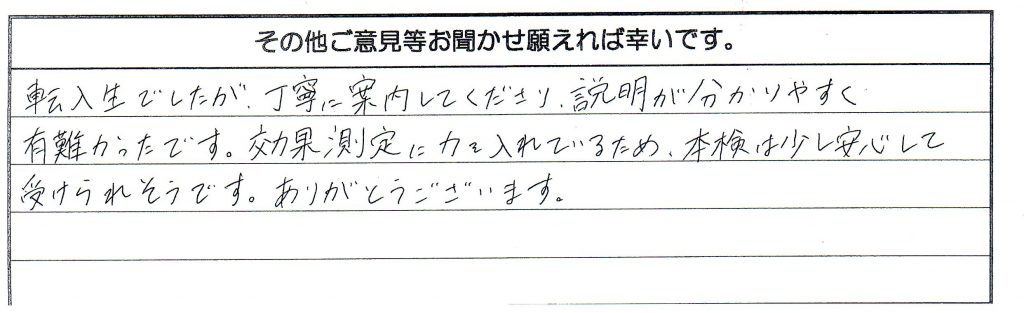 その他ご意見等お聞かせ願えれば幸いです。
転入生でしたが、丁寧に案内してくださり、説明が分かりやすく
有難かったです。効果測定に力を入れているため、本検は少し安心して
受けられそうです。ありがとうございます。